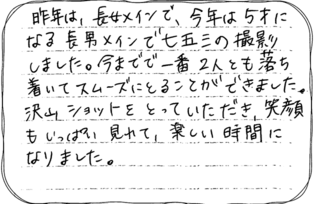 昨年は、長女メインで、今年は5才に
なる長男メインで七五三の撮影
しました。今までで一番2人とも落ち
着いてスムーズにとることができました。
沢山ショットをとっていただき、笑顔
もいっぱい見れて、楽しい時間に
なりました。